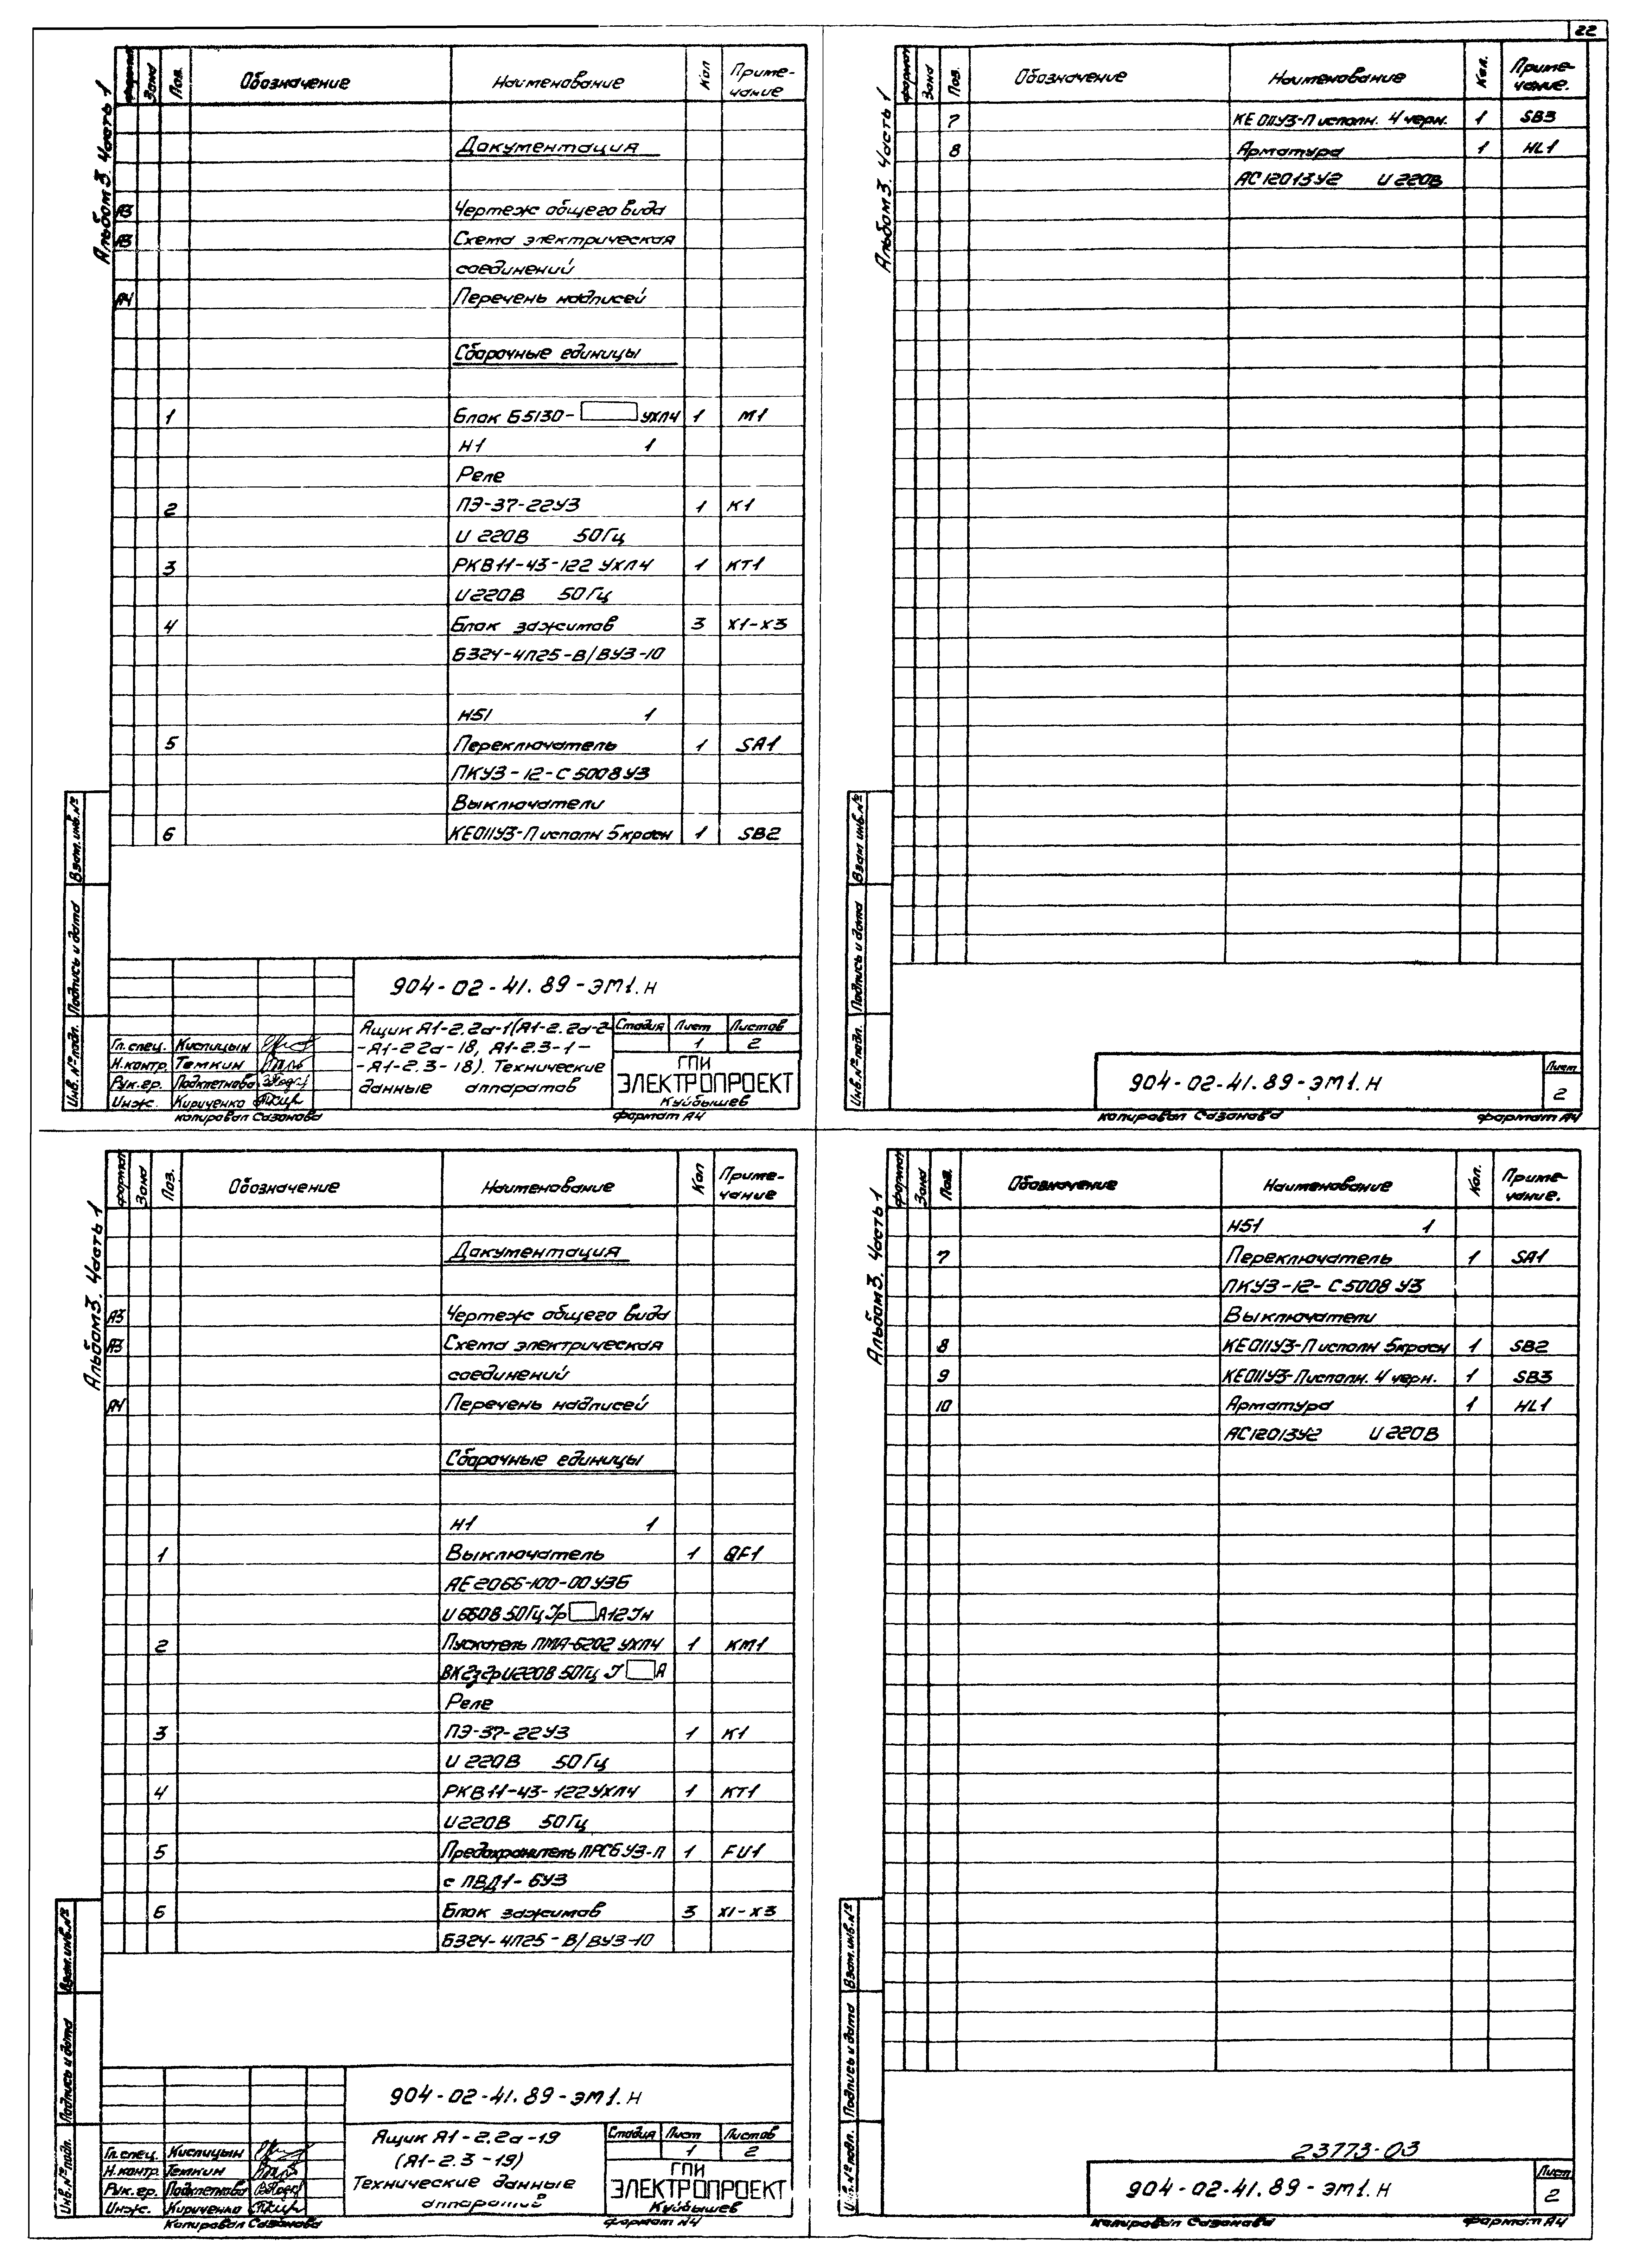 22
Альбом 3. Часть 1
Формат Зона Поз. Обозначение Наименование Кол Приме-
чание
Документация
А3 Чертеж общего вида
А3 Схема электрическая
соединений
А4 Перечень надписей
Сборочные единицы
1 Блок Б5130- УХЛ4 1 М1
Н1 1
Реле
2 ПЭ-37-22У3 1 К1
U 220В 50Гц
3 РКВ11-43-122 УХЛ4 1 КТ1
U 220В 50Гц
4 Блок зажимов 3 Х1-Х3
Б324-4П25-В/ВУ3-10
Н51 1
5 Переключатель 1 SA1
ПКУ3-12-С5008У3
Выключатели
6 КЕ011У3-П исполн 5 красн 1 SB2
Взам. инв. №
Подпись и дата
Инв. № подл.
904-02-41.89-ЭМ1.Н
Ящик Я1-2.2а-1(Я1-2.2а-2-
-Я1-2.2а-18, Я1-2.3-1-
-Я1-2.3-18). Технические
данные аппаратов
Стадия Лист Листов
1 2
ГПИ
ЭЛЕКТРОПРОЕКТ
Куйбышев
Гл. спец. Кислицын
Н.контр. Темкин
Рук. гр. Подклетнова
Инж. Кириченко
копировал Сазанова формат А4
Альбом 3. Часть 1
Формат Зона Поз. Обозначение Наименование Кол. Приме-
чание.
7 КЕ011У3-П исполн. 4 черн. 1 SB3
8 Арматура 1 HL1
АС12013У2 U 220В
Взам. инв. №
Подпись и дата
Инв. № подл.
904-02-41.89-ЭМ1.Н
Лист
2
копировал Сазанова формат А4
Альбом 3. Часть 1
Формат Зона Поз. Обозначение Наименование Кол Приме-
чание
Документация
А3 Чертеж общего вида
А3 Схема электрическая
соединений
А4 Перечень надписей
Сборочные единицы
Н1 1
1 Выключатель 1 QF1
АЕ2066-100-00У3Б
U 660В 50Гц Iр А 12Iн
2 Пускатель ПМА-6202 УХЛ4 1 КМ1
ВК 2з2р U 220В 50Гц I А
Реле
3 ПЭ-37-22У3 1 К1
U 220В 50Гц
4 РКВ11-43-122УХЛ4 1 КТ1
U 220В 50Гц
5 Предохранитель ПРС6У3-П 1 FU1
с ПВД1-6У3
6 Блок зажимов 3 Х1-Х3
Б324-4П25-В/ВУ3-10
Взам. инв. №
Подпись и дата
Инв. № подл.
904-02-41.89-ЭМ1.Н
Ящик Я1-2.2а-19
(Я1-2.3-19)
Технические данные
аппаратов
Стадия Лист Листов
1 2
ГПИ
ЭЛЕКТРОПРОЕКТ
Куйбышев
Гл. спец. Кислицын
Н.контр Темкин
Рук. гр. Подклетнова
Инж. Кириченко
Копировал Сазанова формат А4
Альбом 3. Часть 1
Формат Зона Поз. Обозначение Наименование Кол. Приме-
чание.
Н51 1
7 Переключатель 1 SA1
ПКУ3-12-С5008 У3
Выключатели
8 КЕ011У3-П исполн 5 красн 1 SB2
9 КЕ011У3-П исполн. 4 черн. 1 SB3
10 Арматура 1 HL1
АС12013У2 U 220В
Взам. инв. №
Подпись и дата
Инв. № подл.
23773-03
904-02-41.89-ЭМ1.Н
Лист
2
копировал Сазанова формат А4